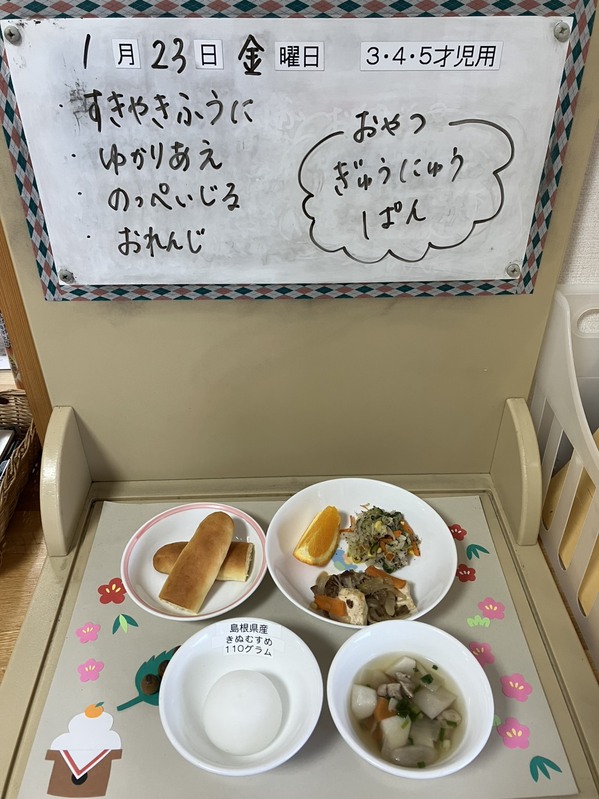 1月23日金曜日 3・4・5才児用
・すきやきふうに
・ゆかりあえ
・のっぺいじる
・おれんじ
おやつ
ぎゅうにゅう
ぱん
島根県産
きぬむすめ
110グラム